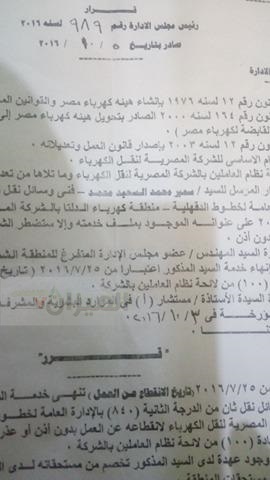 قـــــرار
رئيس مجلس الادارة رقم ٩٨٩ لسنه ٢٠١٦
صادر بتاريخ ٥ / ١٠ / ٢٠١٦
الادارة
ون رقم ١٢ لسنه ١٩٧٦ بإنشاء هيئه كهرباء مصر والقوانين
ون رقم ١٦٤ لسنه ٢٠٠٠ الصادر بتحويل هيئه كهرباء مصر إلى
القابضة لكهرباء مصر ) ٠
ون رقم ١٢ لسنه ٢٠٠٣ بإصدار قانون العمل وتعديلاته ٠
ام الاساسى للشركة المصرية لنقل الكهرباء ٠
نظام العاملين بالشركة المصرية لنقل الكهرباء وما تلاها من
المرسل للسيد / سمير محمد السعيد محمد – فنى وسائل نقل
عامة لخطوط الدقهلية – منطقة كهرباء الدلتا بالشركة
على عنوانه الموجود بملف خدمته وإلا ستضطر
دون أذن ٠
السيد المهندس / عضو مجلس الإدارة المتفرغ للمنطقة
انهاء خدمة السيد المذكور اعتبارا من ٢٠١٦/٧/٢٥ ( تاريخ
(١٠٠) من لائحة نظام العاملين بالشركة
السيدة الأستاذة / مستشار (أ) فى الموارد البشرية والمشرف
ورخة فى ٢٠١٦/١٠/٣ ٠
" قـــــرر "
ن ٢٠١٦/٧/٢٥ (تاريخ الانقطاع عن العمل) تنهى خدمة
ئل نقل ثان من الدرجة الثانية (٨٤٠) بالإدارة العامة
المصرية لنقل الكهرباء لانقطاعه عن العمل بدون أذن أو
ادة (١٠٠) من لائحة نظام العاملين بالشركة ٠
وجود عهدة لدى السيد المذكور تخصم من مستحقاته لدى